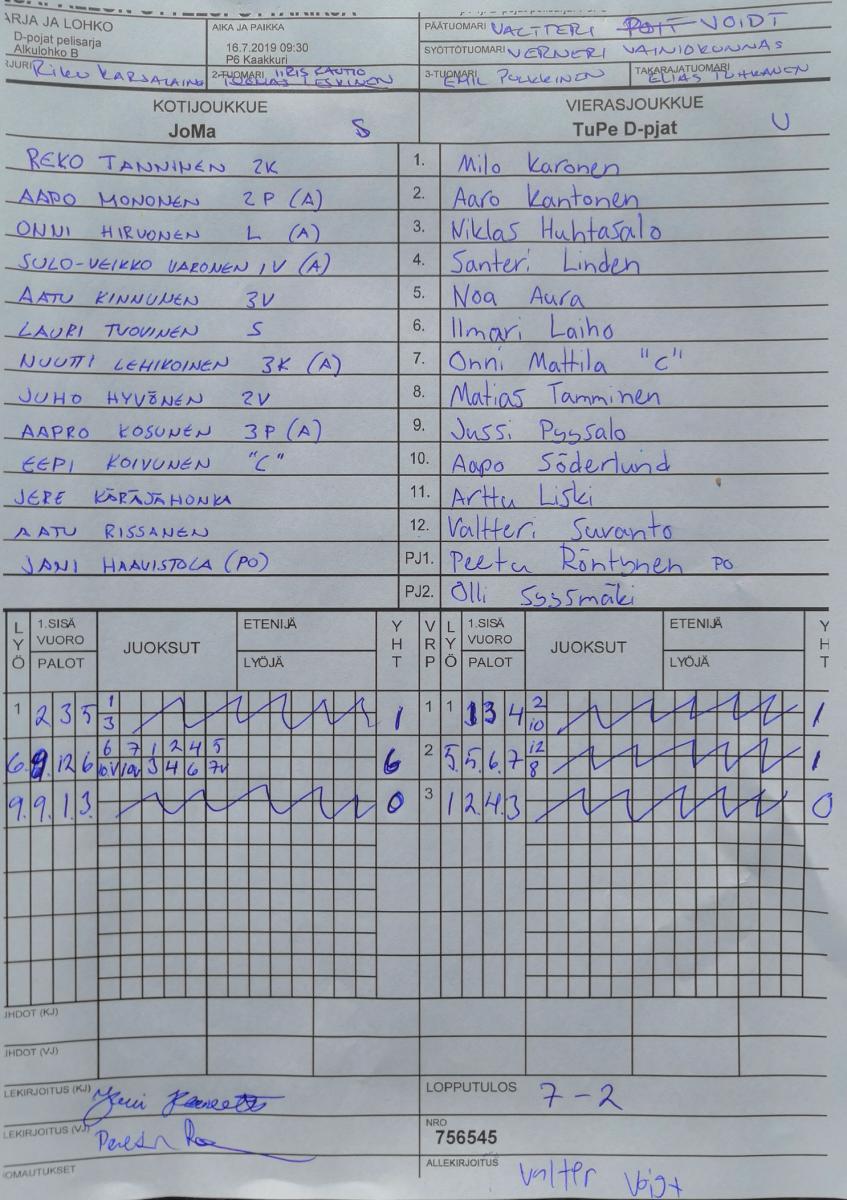 ARJA JA LOHKO
D-pojat pelisarja
Alkulohko B
AIKA JA PAIKKA
16.7.2019 09:30
P6 Kaakkuri
PÄÄTUOMARI VALTTERI VOIDT
SYÖTTÖTUOMARI VERNERI VAINIOKUNNAS
RIKU KARJALAINEN
2-TUOMARI IIRIS KAUTIO
3-TUOMARI EMIL PULKKINEN
TAKARAJATUOMARI ELIAS
KOTIJOUKKUE
JoMa S
VIERASJOUKKUE
TuPe D-pjat U
REKO TANNINEN 2K 1. Milo Karonen
AAPO MONONEN 2P (A) 2. Aaro Kantonen
ONNI HIRVONEN L (A) 3. Niklas Huhtasalo
SULO-VEIKKO VARONEN 1V (A) 4. Santeri Linden
AATU KINNUNEN 3V 5. Noa Aura
LAURI TUOVINEN S 6. Ilmari Laiho
NUUTTI LEHIKOINEN 3K (A) 7. Onni Mattila "C"
JUHO HYVÖNEN 2V 8. Matias Tamminen
AAPRO KOSUNEN 3P (A) 9. Jussi Pyysalo
EEPI KOIVUNEN "C" 10. Aapo Söderlund
JERE KÄRÄJÄHONKA 11. Arttu Liski
AATU RISSANEN 12. Valtteri Suvanto
JANI HAAVISTOLA (PO) PJ1. Peetu Röntynen PO
PJ2. Olli Syysmäki
LYÖ 1.SISÄ VUORO PALOT JUOKSUT ETENIJÄ LYÖJÄ YHT VRP LYÖ 1.SISÄ VUORO PALOT JUOKSUT ETENIJÄ LYÖJÄ YHT
1 2 3 5 1 1 1 1 3 4 2 1
3 10
6. 9 12 6 6 7 1 2 4 5 6 2 5. 5. 6. 7 12 1
3 4 6 7V 8
9. 9. 1. 3. 0 3 1 2. 4. 3 0
JHDOT (KJ)
JHDOT (VJ)
LEKIRJOITUS (KJ)
LEKIRJOITUS (VJ)
OMAUTUKSET
LOPPUTULOS 7-2
NRO
756545
ALLEKIRJOITUS Valtter Voigt